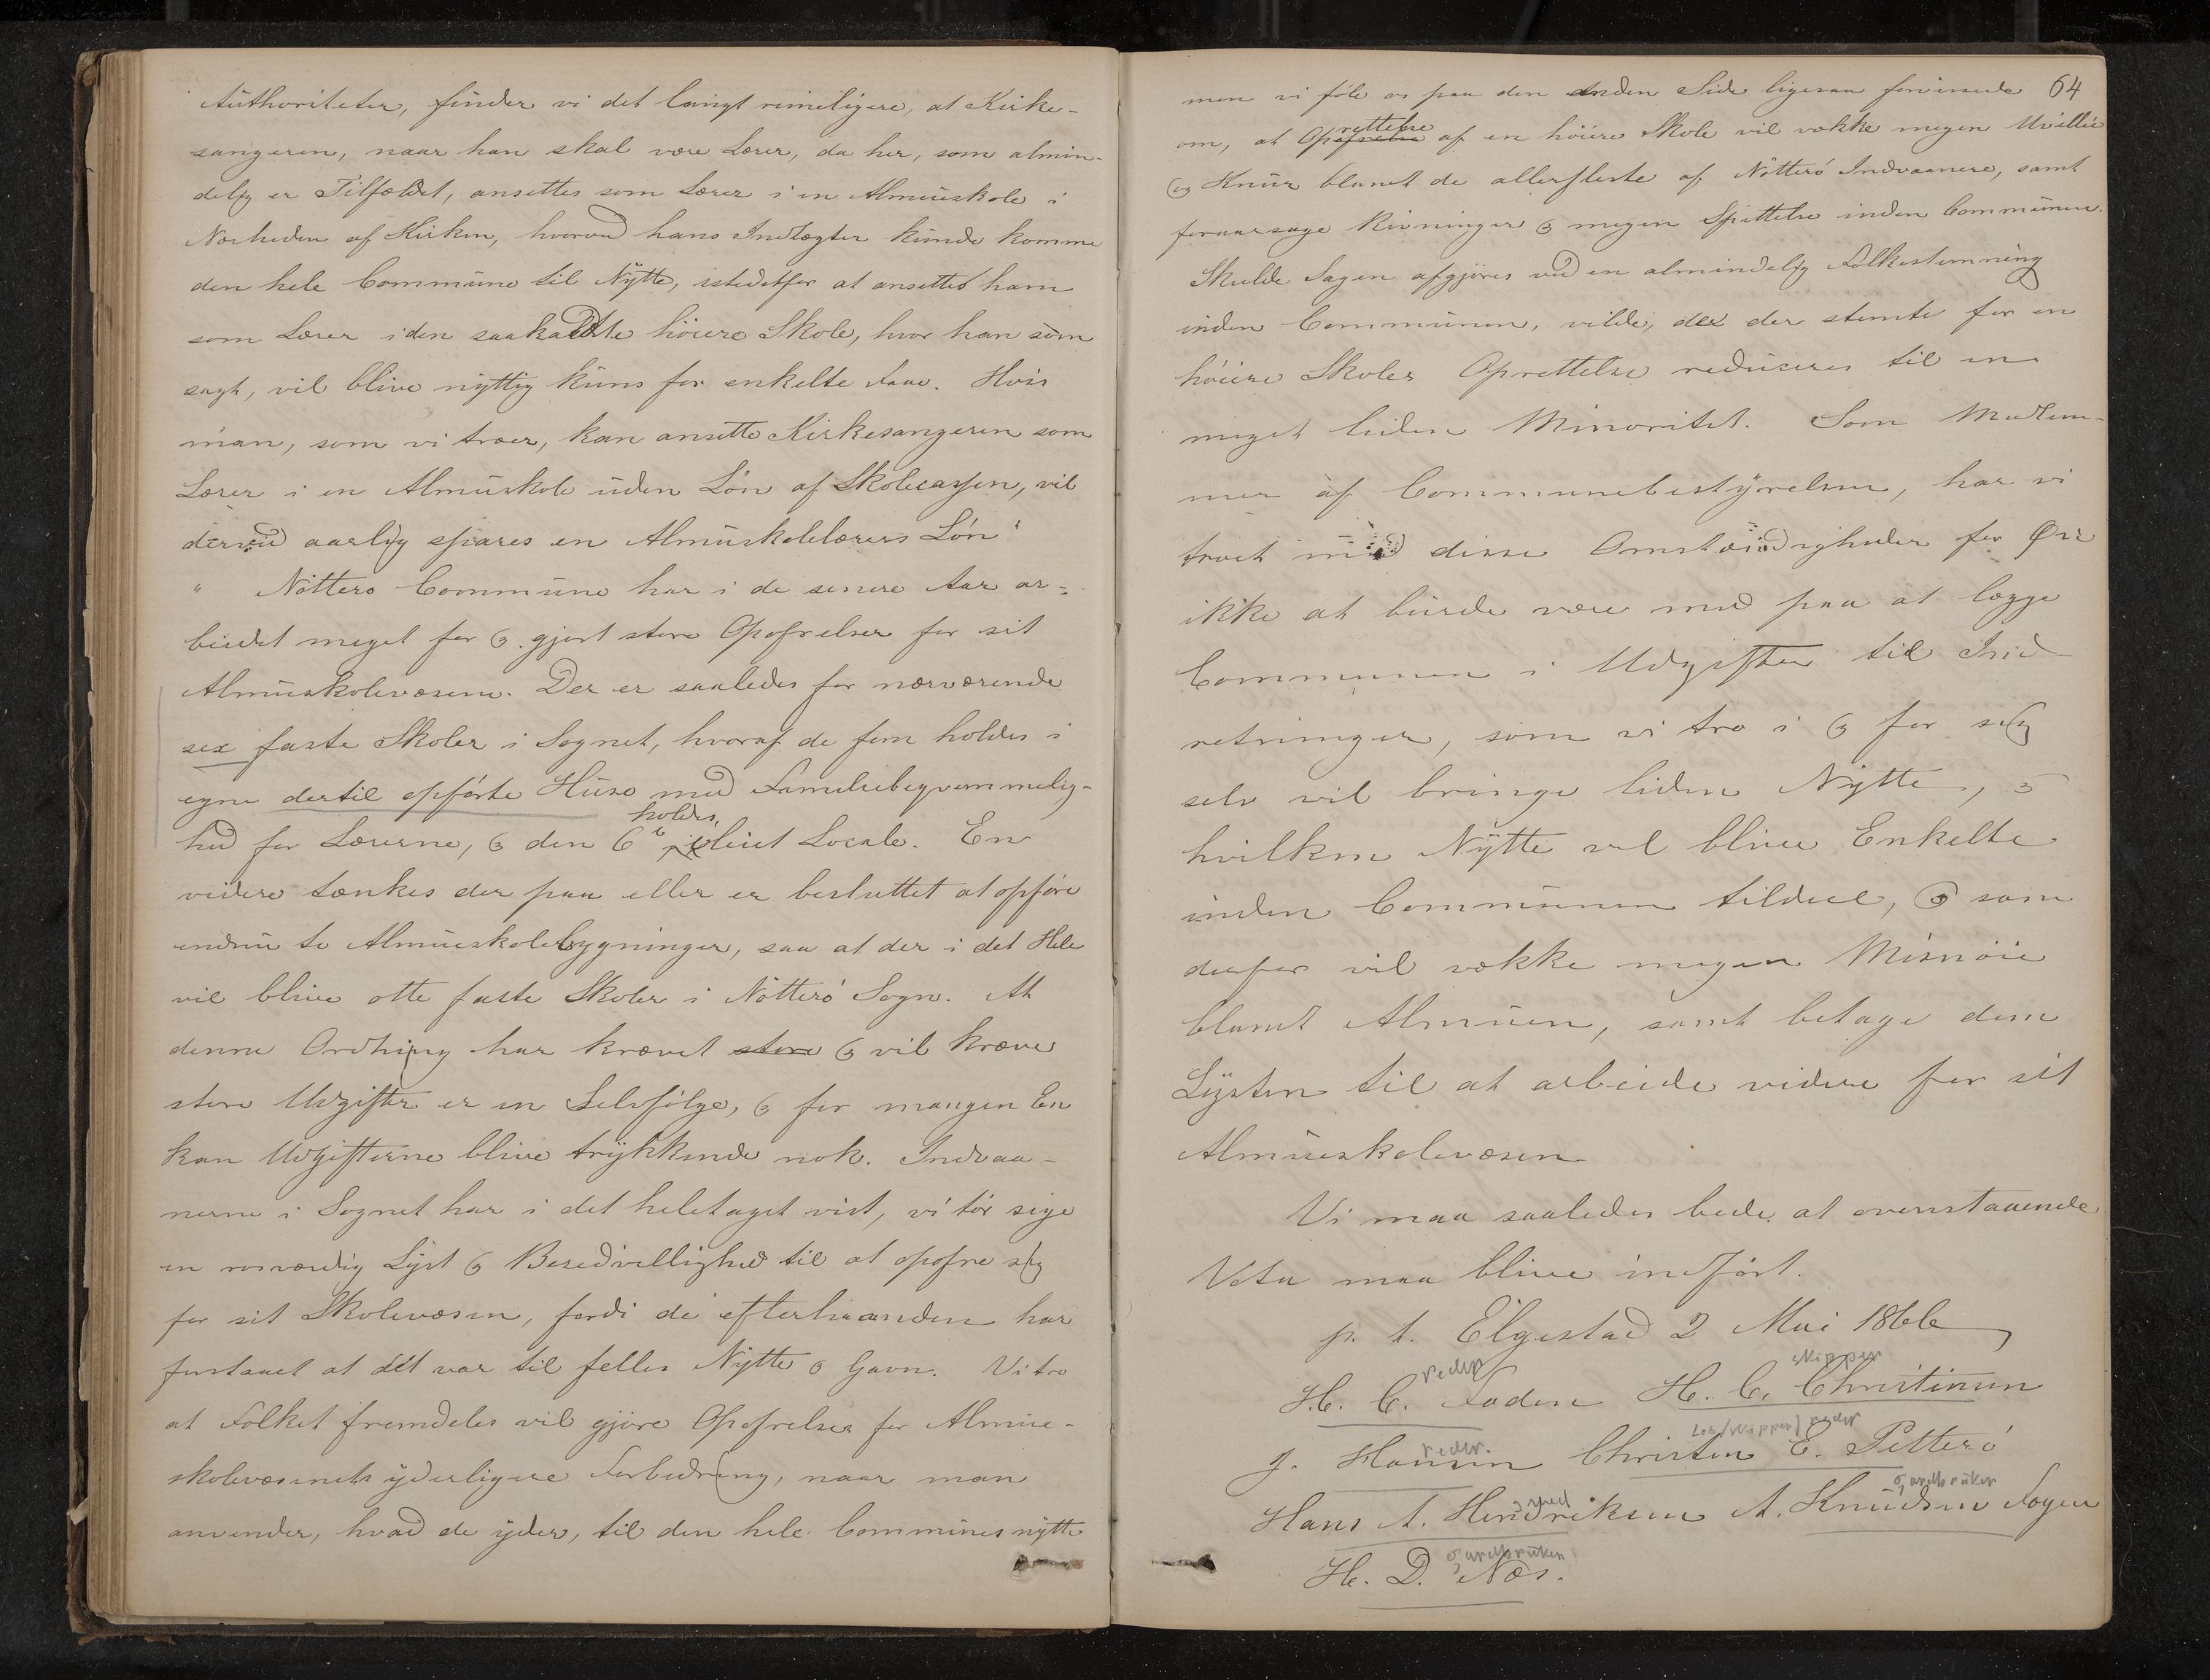 Authoriteter, finder vi det langt rimeligere, at Kirke-
sangeren, naar han skal være Lærer, da her, som almin-
delig er Tilfældet, ansettes som Lærer i en Almueskole i
Nærheden af Kirken, hvorved hans Indtægter kunde komme
den hele Commune til Nytte, istedetfor at ansettes ham
som Lærer i den saakaldte høiere Skole, hvor han som
sagt, vil blive nyttig kuns for enkelte Faae. Hvis
man, som vi troer, kan ansette Kirkesangeren som
Lærer i en Almuskole uden Løn af Skolecassen, vil
derved aarlig spares en Almuskolelærers Løn"
" Nøtterø Commune har i de senere Aar ar-
beidet meget for og gjort store Opofrelser for sit
Almueskolevæsene. Der er saaledes for nærværende
sex faste Skoler i Sognet, hvoraf de fem holdes i
egne dertil opførte Huse med Familiebeqvemmelig-
holdes
hed for Lærerne, og den 6te i leiet Locale. En
videre tænkes der paa eller er besluttet at opføre
endnu to Almueskolebygninger, saa at der i det Hele
vil blive otte faste Skoler i Nøtterø Sogn. At
denne Ordning har krævet store og vil kræve
store Udgifter er en Selvfølge, og for mangen En
kan Udgifterne blive trykkende nok. Indvaa-
nerne i Sognet har i det heletaget vist, vi tør sige
en rosværdig Lyst og Beredvillighed til at opofre sig
for sit Skolevæsen, fordi de efterhaanden har
forstaaet at det var til felles Nytte og Gavn. Vi tro
at Folket fremdeles vil gjøre Opofrelser for Almue-
skolevæsenets yderligere Forbedring, naar man
anvender, hvad de yder, til den hele Communes nytte
64
men vi føle os paa den anden Side ligesaa forvissede
rettelse
om, at Opofrelse af en høiere Skole vil vække megen Uvillie
og Knur blandt de allerfleste af Nøtterø Indvaanere, samt
foraarsage Rivninger og megen Splittelse inden Communen.
Skulde Sagen afgjøres ved en almindelig Folkestemning
inden Communen, vilde, der der stemte for en
høiere Skoles Oprettelse reduceres til en
meget liden Minoritet. Som Medlem-
mer af Communebestyrelsen, har vi
troet med disse Omstændigheder for Øie
ikke at burde være med paa at lægge
Communen i Udgifter til Ind-
retninger, som vi tro i og for sig
selv vil bringe liden Nytte, og
hvilken Nytte vil blive Enkelte
inden Communen tildeel, og som
derfor vil vække megen Misnøie
blandt Almuen, samt betage dem
Lysten til at arbeide videre for sit
Almueskolevæsen
Vi maa saaledes bede at ovenstaaende
Vota maa blive indført.
p. t. Elgestad 2 Mai 1866
reder skipper
H. C. Foden H. C. Christensen
reder. Los/skipper/reder
J. Hansen Christen E. Petterø
gårdbruker
Hans A. Hendriksen A. Knudsen Fogen
gårdbruker
H. D. Næs.